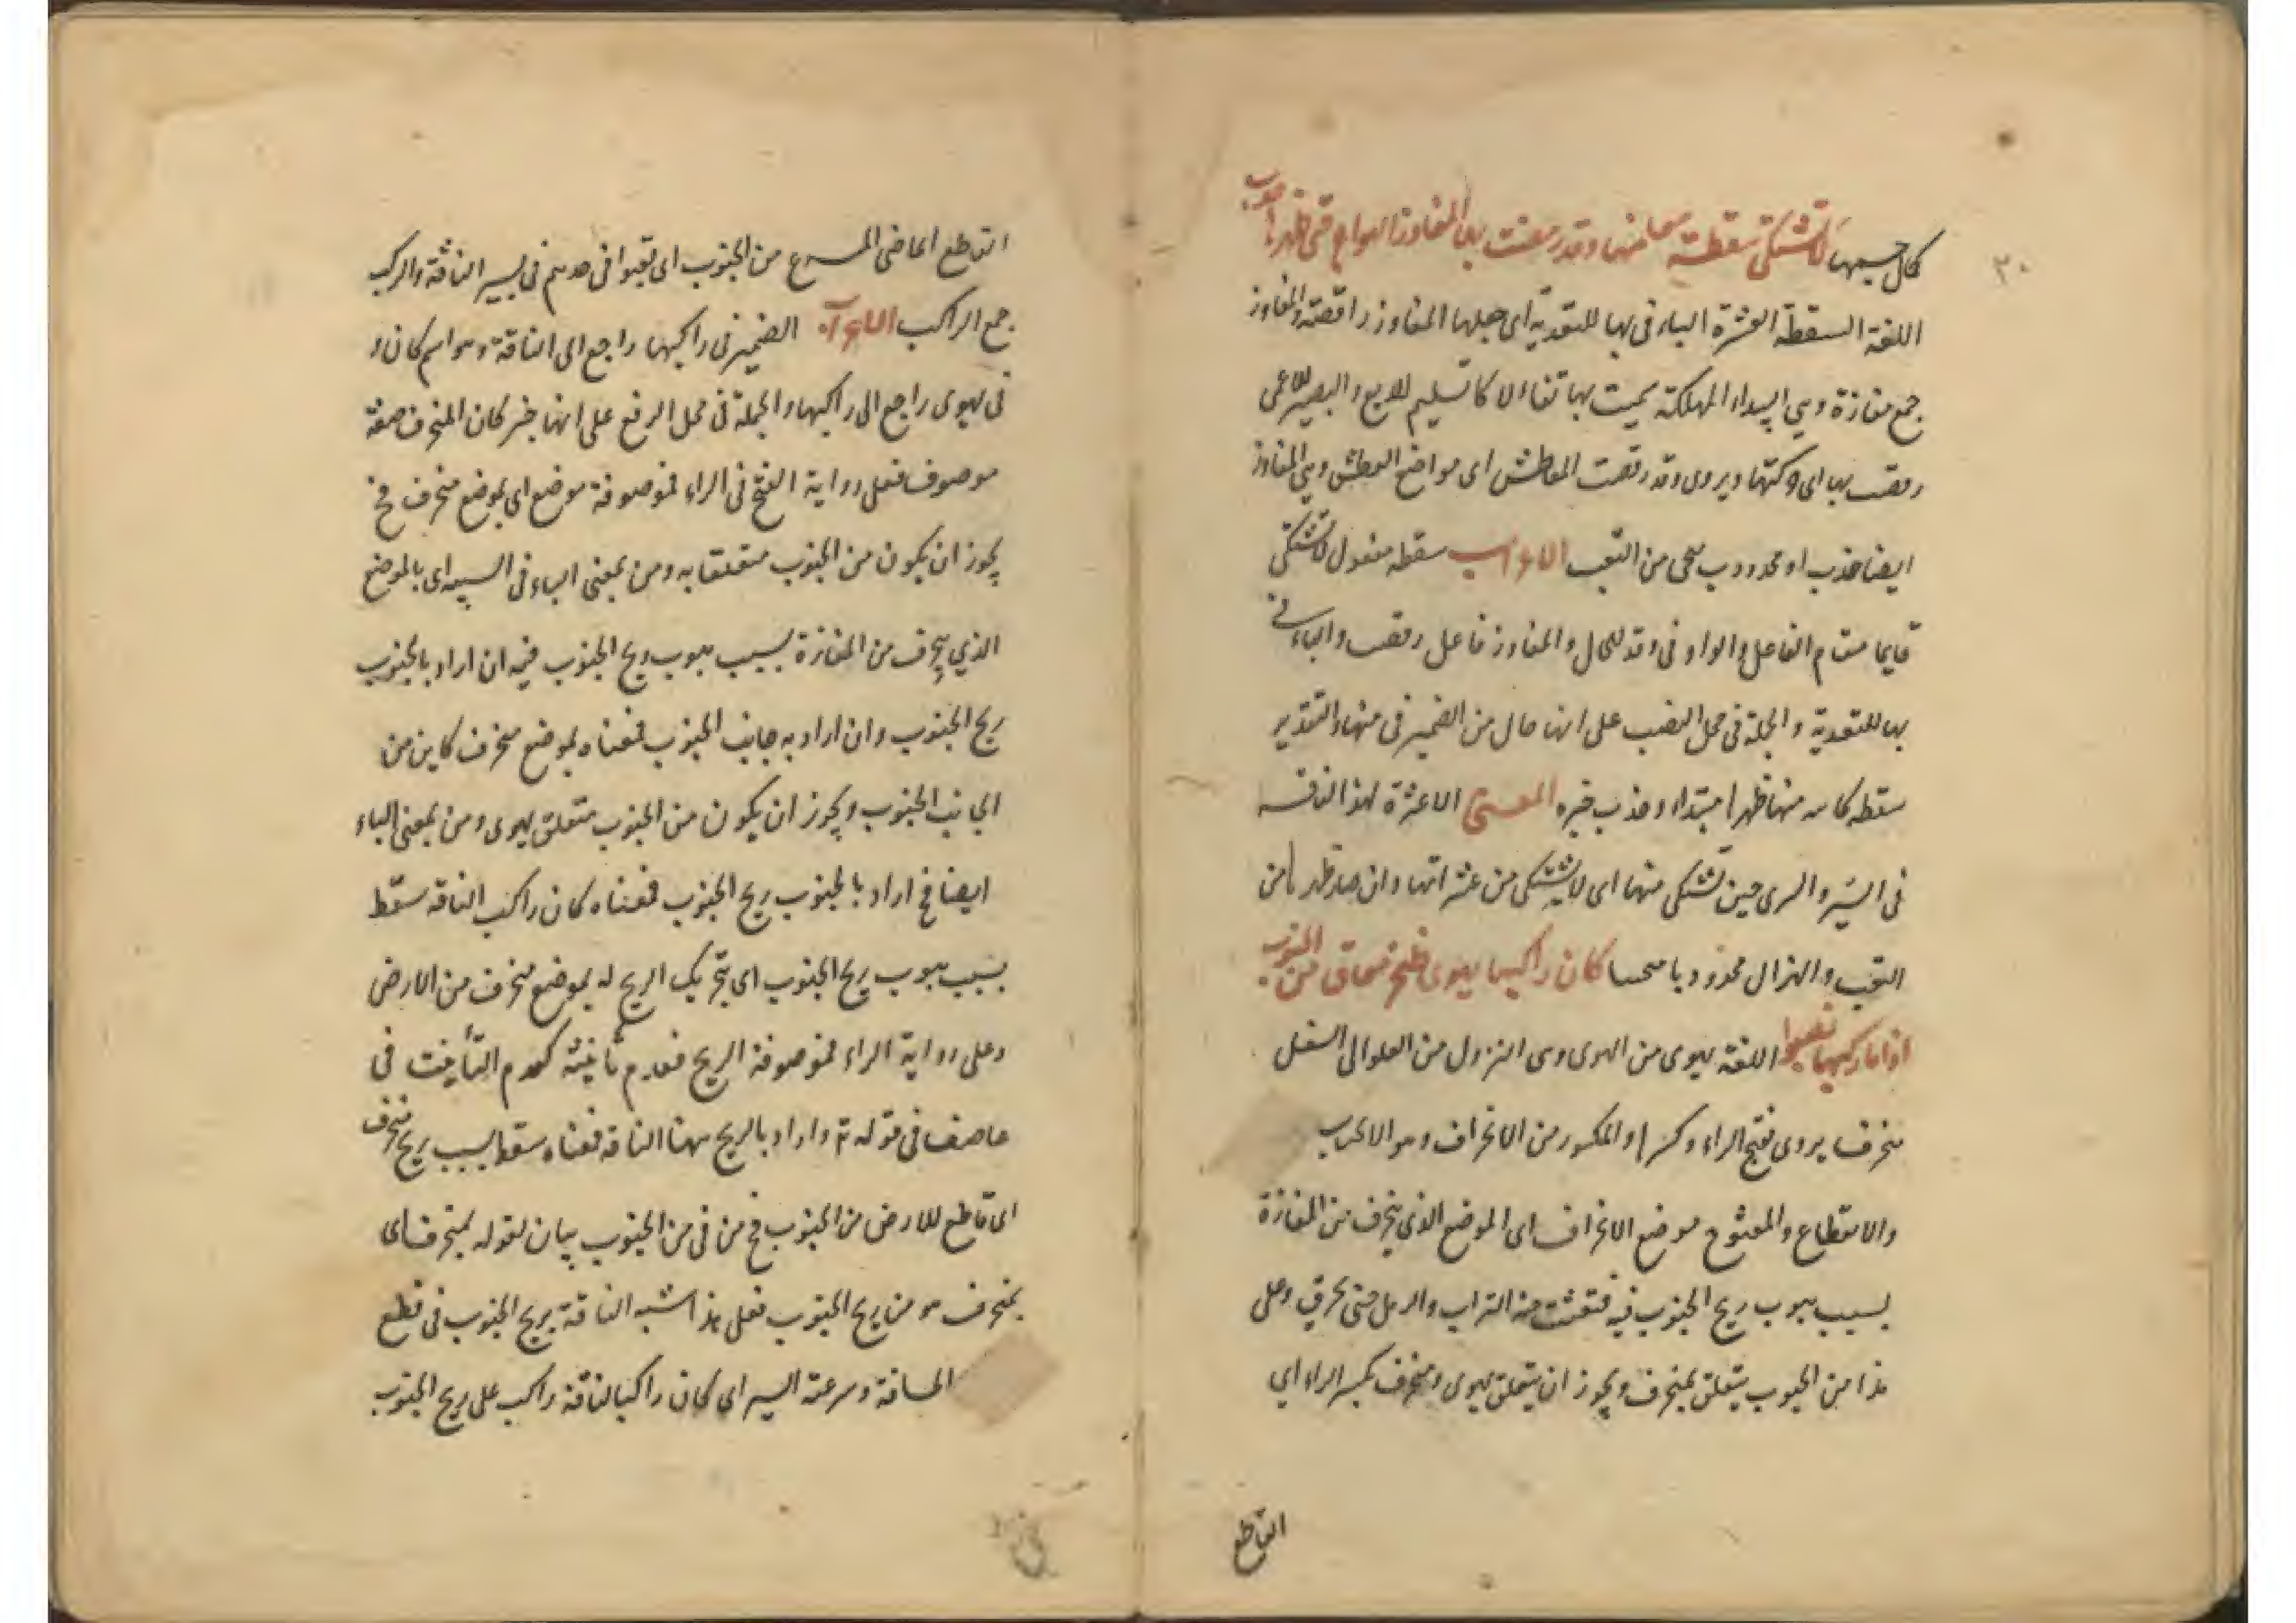 ٣٠
كمال حسبها لا تشتكى سقطة منها وقد رقصت بها المفاوز حتى ظهرها حدب
اللغة السقطة العثرة الباء فى بها للتعدية اى جعلها المفاوز راقصة والمفاوز
جمع مفازة وهى البيداء المهلكة سميت بها تفاولا كالسليم للديغ والبصير للاعمى
رقصت بها اى حركتها ويروى وقد رقصت المعاطش اى مواضع العطش وهى المفاوز
ايضا حذب او محدودب من التعب الاعراب سقطه مفعول لا تشتكى
قايما مقام الفاعل والواو فى وقد للحال والمفاوز فاعل رقصت والباء فى
بها للتعدية والجملة فى محل النصب على انها حال من الضمير فى منها والتقدير
سقطه منها ظهرها مبتداء وحذب خبره المعنى لا عثرة لهذا الناقة
فى السير والسرى حين تشتكى منها اى لا يشتكى من عثراتها وان صار ظهرها من
التعب والهزال كان راكبها يهوى بمنخرق من الجنوب
اذا ما ركبها نصبوا اللغة يهوى من الهوى وهى النزول من العلو الى السفل
منخرف يروى بفتح الراء وكسرها والمكسور من الانخراف وهو
والانقطاع والمفتوح موضع الانخراف اى الموضع الذى ينخرف من المفازة
بسبب هبوب ريح الجنوب فيه منه التراب والرمل حتى وعلى
هذا من الجنوب يتعلق بمنخرف ويجوز ان يتعلق يهوى ومنخرف بكسر الراء اى
القاطع
القاطع الماضى المسرع من الجنوب اى تعبوا فى فى سير الناقة والركب
جمع الراكب الاعراب الضمير فى راكبها راجع الى الناقة وهو اسم كان و
فى يهوى راجع الى راكبها والجملة فى محل الرفع على انها خبر كان المنخرف صفة
موصوف فعلى رواية الفتح فى الراء فموصوفة موضع اى بموضع منخرف فح
يجوز ان يكون من الجنوب متعلقا به ومن بمعنى الباء فى السببية اى بالموضع
الذى ينخرف من المفازة بسبب هبوب ريح الجنوب فيه ان اراد بالجنوب
ريح الجنوب وان اراد به جانب الجنوب فمعناه بموضع منخرف كاين من
الجانب الجنوب ويجوز ان يكون من الجنوب متعلق يهوى ومن بمعنى الباء
ايضا فح اراد بالجنوب ريح الجنوب فمعناه كان راكب الناقة سقط
بسبب هبوب ريح الجنوب اى بتحريك الريح له بموضع منخرف من الارض
وعلى رواية الراء فموصوفة الريح فعدم تأنيثه كعدم التأنيث فى
عاصف فى قوله تع واراد بالريح ههنا الناقة فمعناه سقط بسبب ريح منخرف
اى قاطع للارض من الجنوب فح من فى من الجنوب بيان لقوله بمنخرف اى
بمنخرف هو من ريح الجنوب فعلى هذا شبه الناقة بريح الجنوب فى قطع
المسافة وسرعة السير اى كان راكبا لناقة راكب على ريح الجنوب